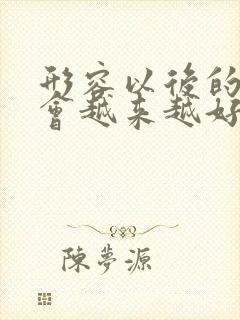 形容以後的
會越来越好
陳夢源